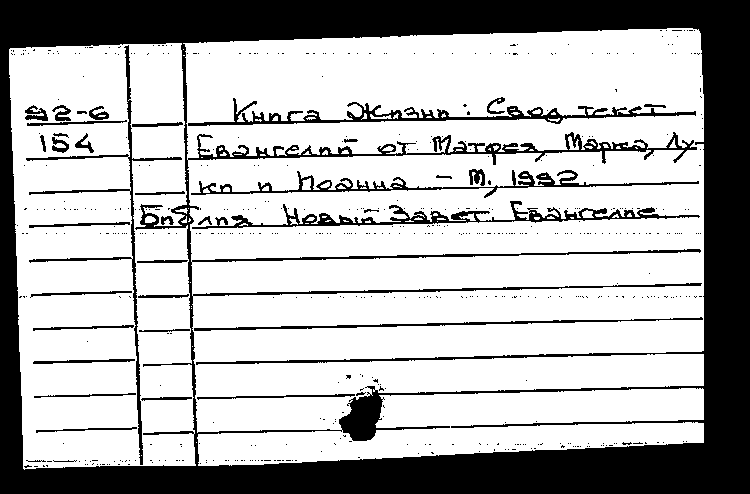 92-6 Книга Жизни : Свод. текст
154 Евангелий от Матфея, Марка, Лу-
ки и Иоанна - М., 1992.
Библия. Новый Завет. Евангелие